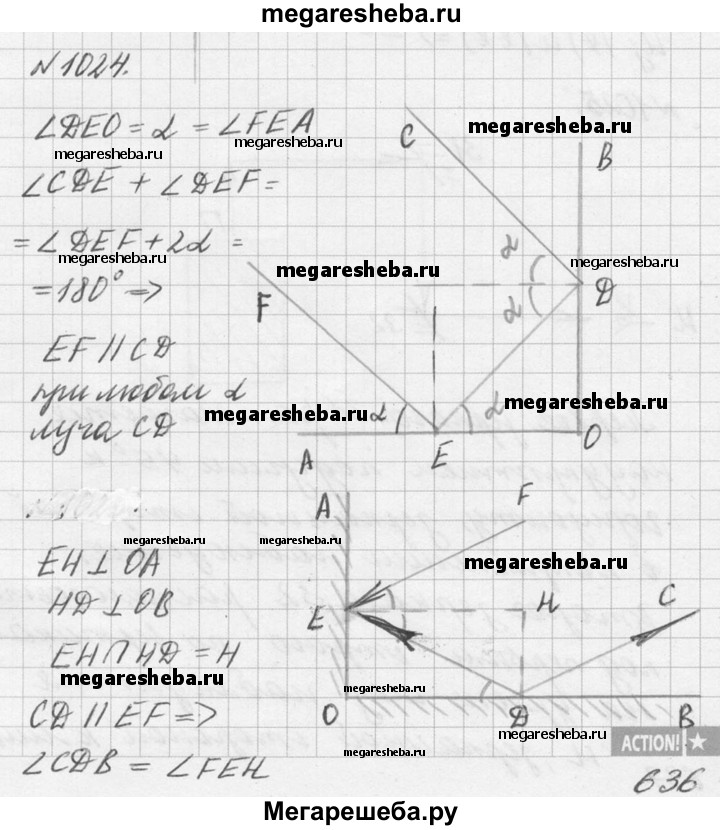 megaresheba.ru
N 1024.
∠DEO = α = ∠FEA
megaresheba.ru
megaresheba.ru
∠CDE + ∠DEF =
= ∠DEF + 2α =
megaresheba.ru
= 180° =>
EF || CD
при любом α
луча CD
C
megaresheba.ru
B
megaresheba.ru
α
megaresheba.ru
megaresheba.ru
D
α
F
megaresheba.ru
megaresheba.ru
α
α
A
E
O
A
F
megaresheba.ru
megaresheba.ru
megaresheba.ru
EH ⊥ OA
HD ⊥ OB
EH ∩ HD = H
megaresheba.ru
CD || EF =>
∠CDB = ∠FEH
E
H
C
megaresheba.ru
O
D
B
megaresheba.ru
ACTION!
636
Мегарешеба.ру